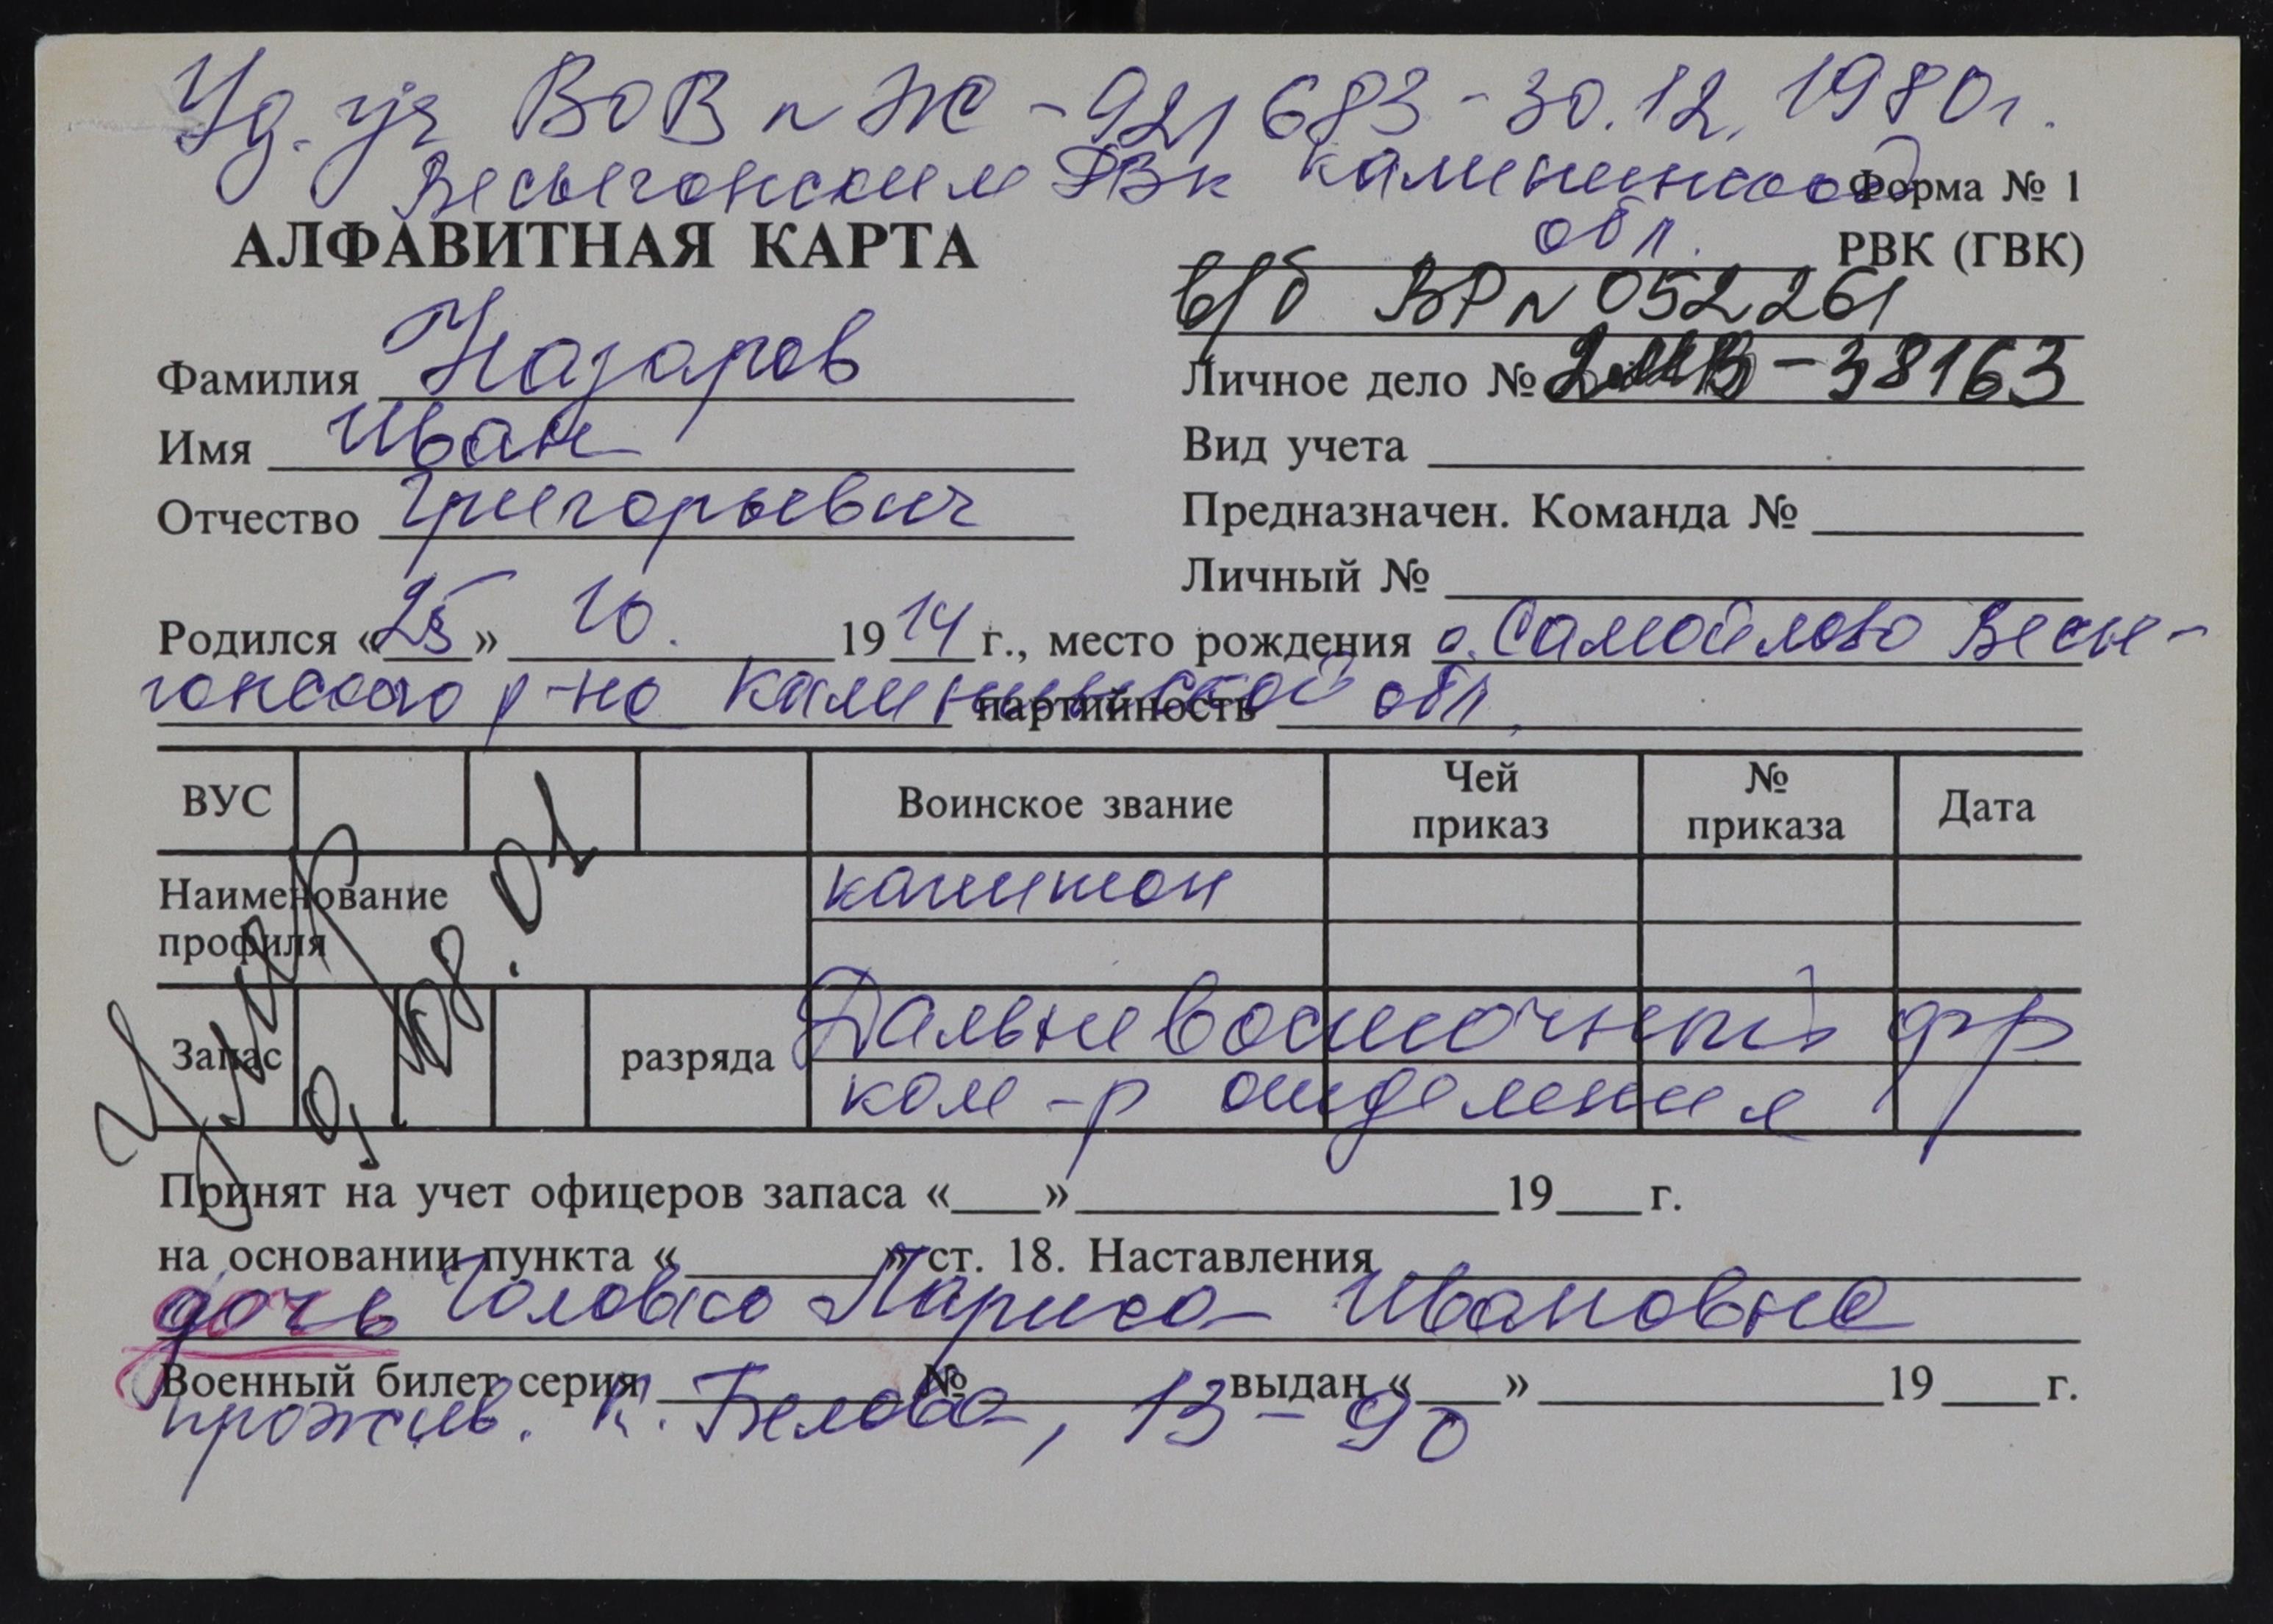 Уд. уч ВОВ № Ж-921683-30.12.1980г.
Весьегонским РВк Калининской
обл.
Форма № 1
АЛФАВИТНАЯ КАРТА
РВК (ГВК)
в/б ВР № 052261
Фамилия Назаров
Личное дело № -38163
Имя Иван
Вид учета
Отчество Григорьевич
Предназначен. Команда №
Личный №
Родился «25» 10. 1914 г., место рождения д. Самойлово Весье-
гонского р-на Калининской обл.
партийность
ВУС
Воинское звание
Чей приказ
№ приказа
Дата
Наименование профиля
капитан
Умер
9.08.01
Запас
разряда
Дальневосточный фр
ком-р отделения
Принят на учет офицеров запаса «___» 19___г.
на основании пункта «___» ст. 18. Наставления
дочь Головко Лариса Ивановна
Военный билет серия № выдан «___» 19___г.
прожив. К. Белова, 13-90